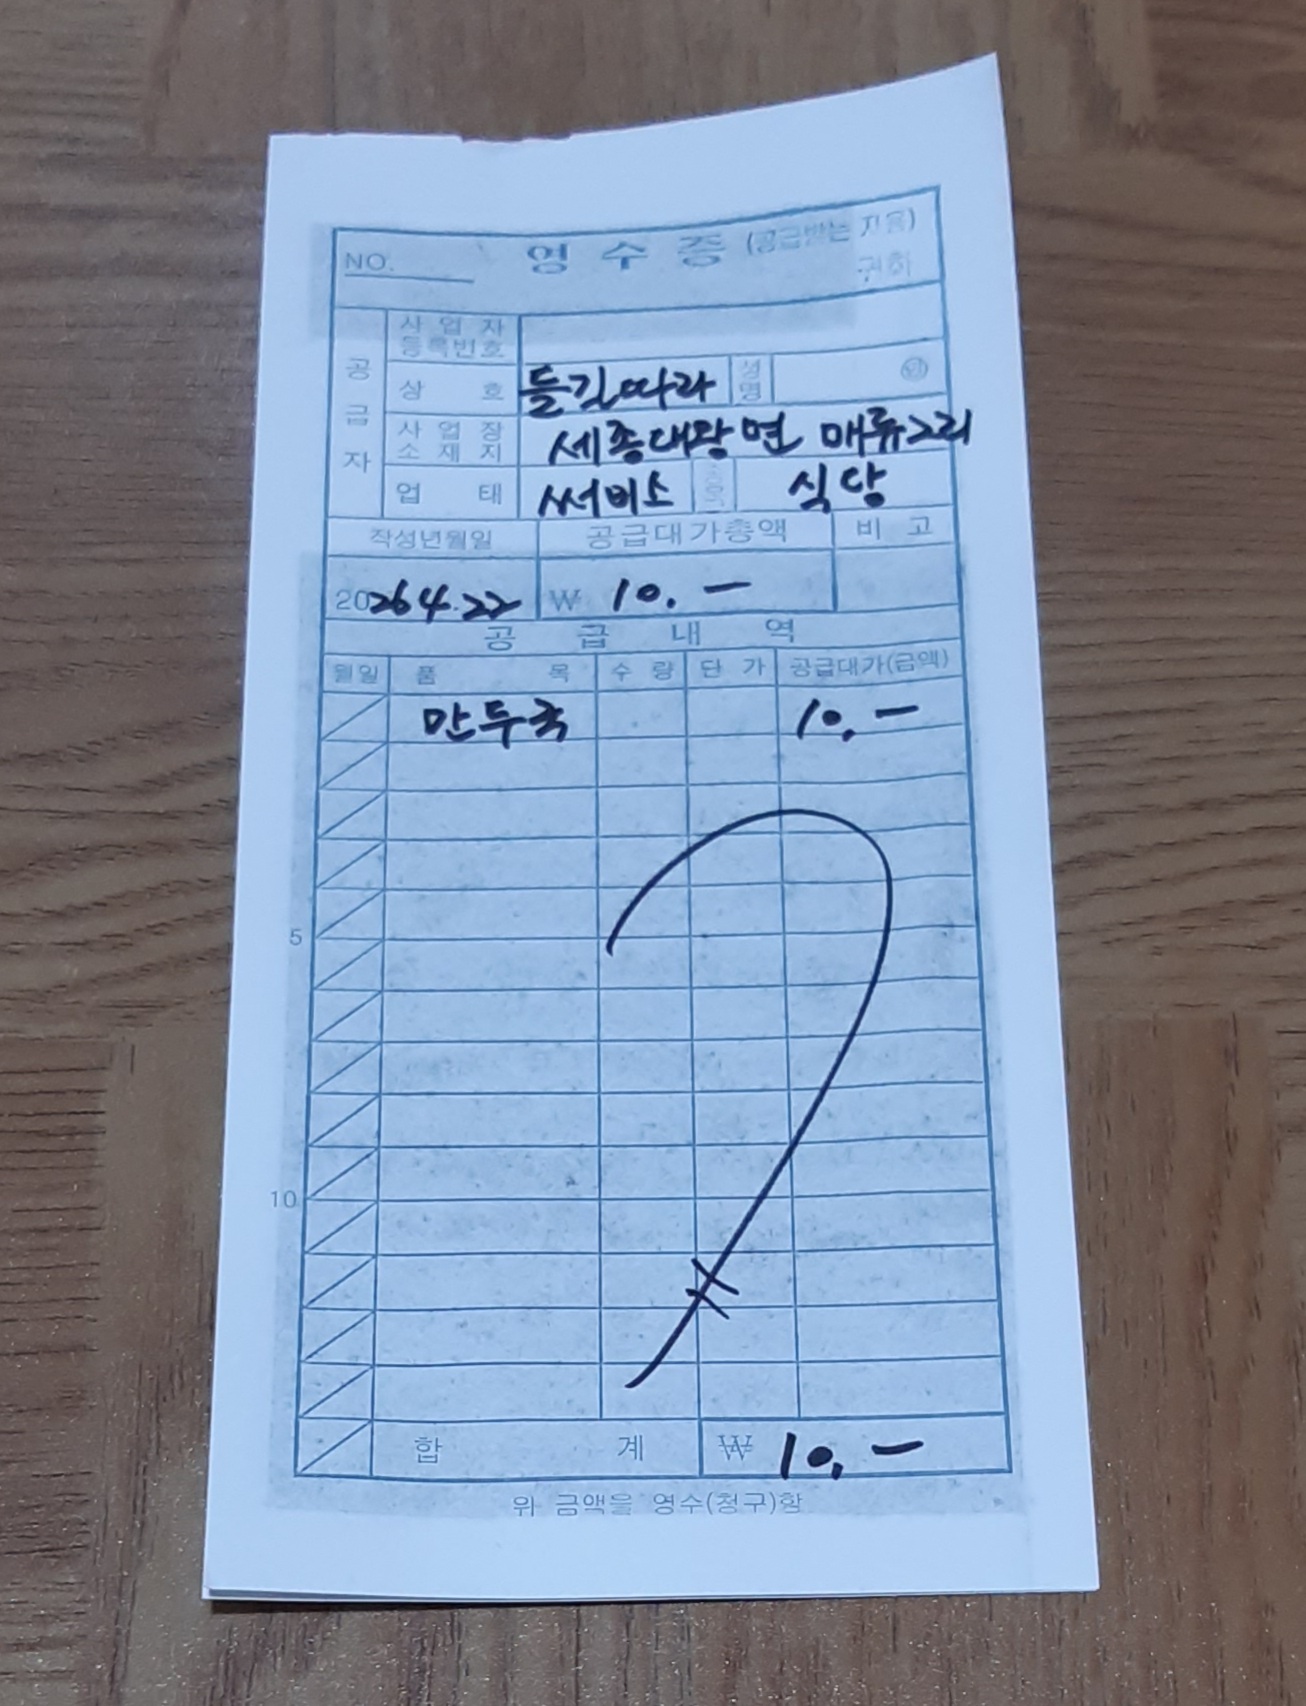 NO. 영 수 증 (공급받는 자용)
귀하
공급자
사 업 자
등록번호
상 호 들길따라 성명 ㊞
사 업 장
소 재 지 세종대왕면 매류2리
업 태 써비스 종목 식당
작성년월일 공급대가총액 비 고
2026 4.22 ₩ 10.-
공 급 내 역
월일 품 목 수 량 단 가 공급대가(금액)
만두국 10.-
5
10
합 계 ₩ 10.-
위 금액을 영수(청구)함